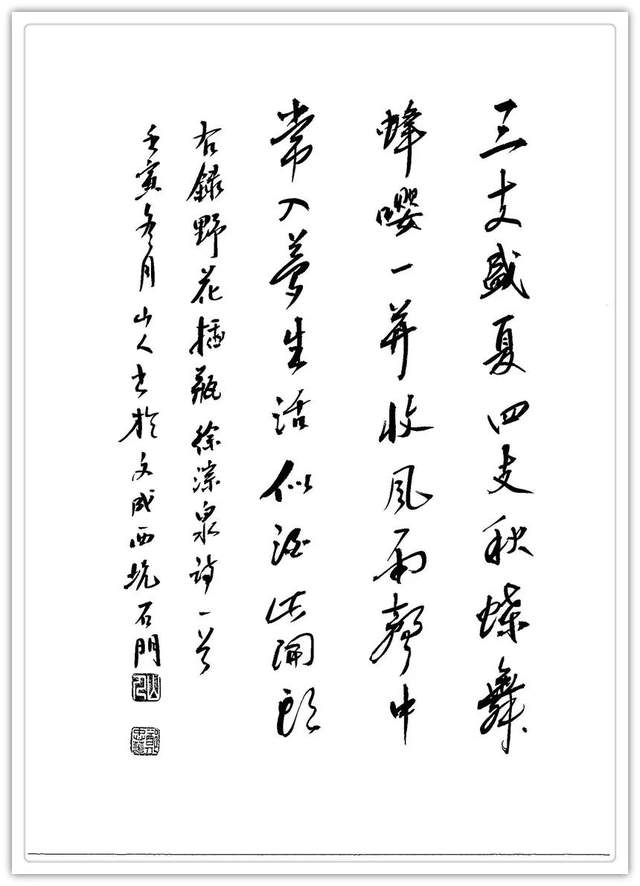 三支盛夏四支秋蝶舞
蜂嚶一并收風雨聲中
常入夢生活似此開頭
右錄野花插瓶徐泉詩一首
壬寅冬月山人书於文成西坑石門